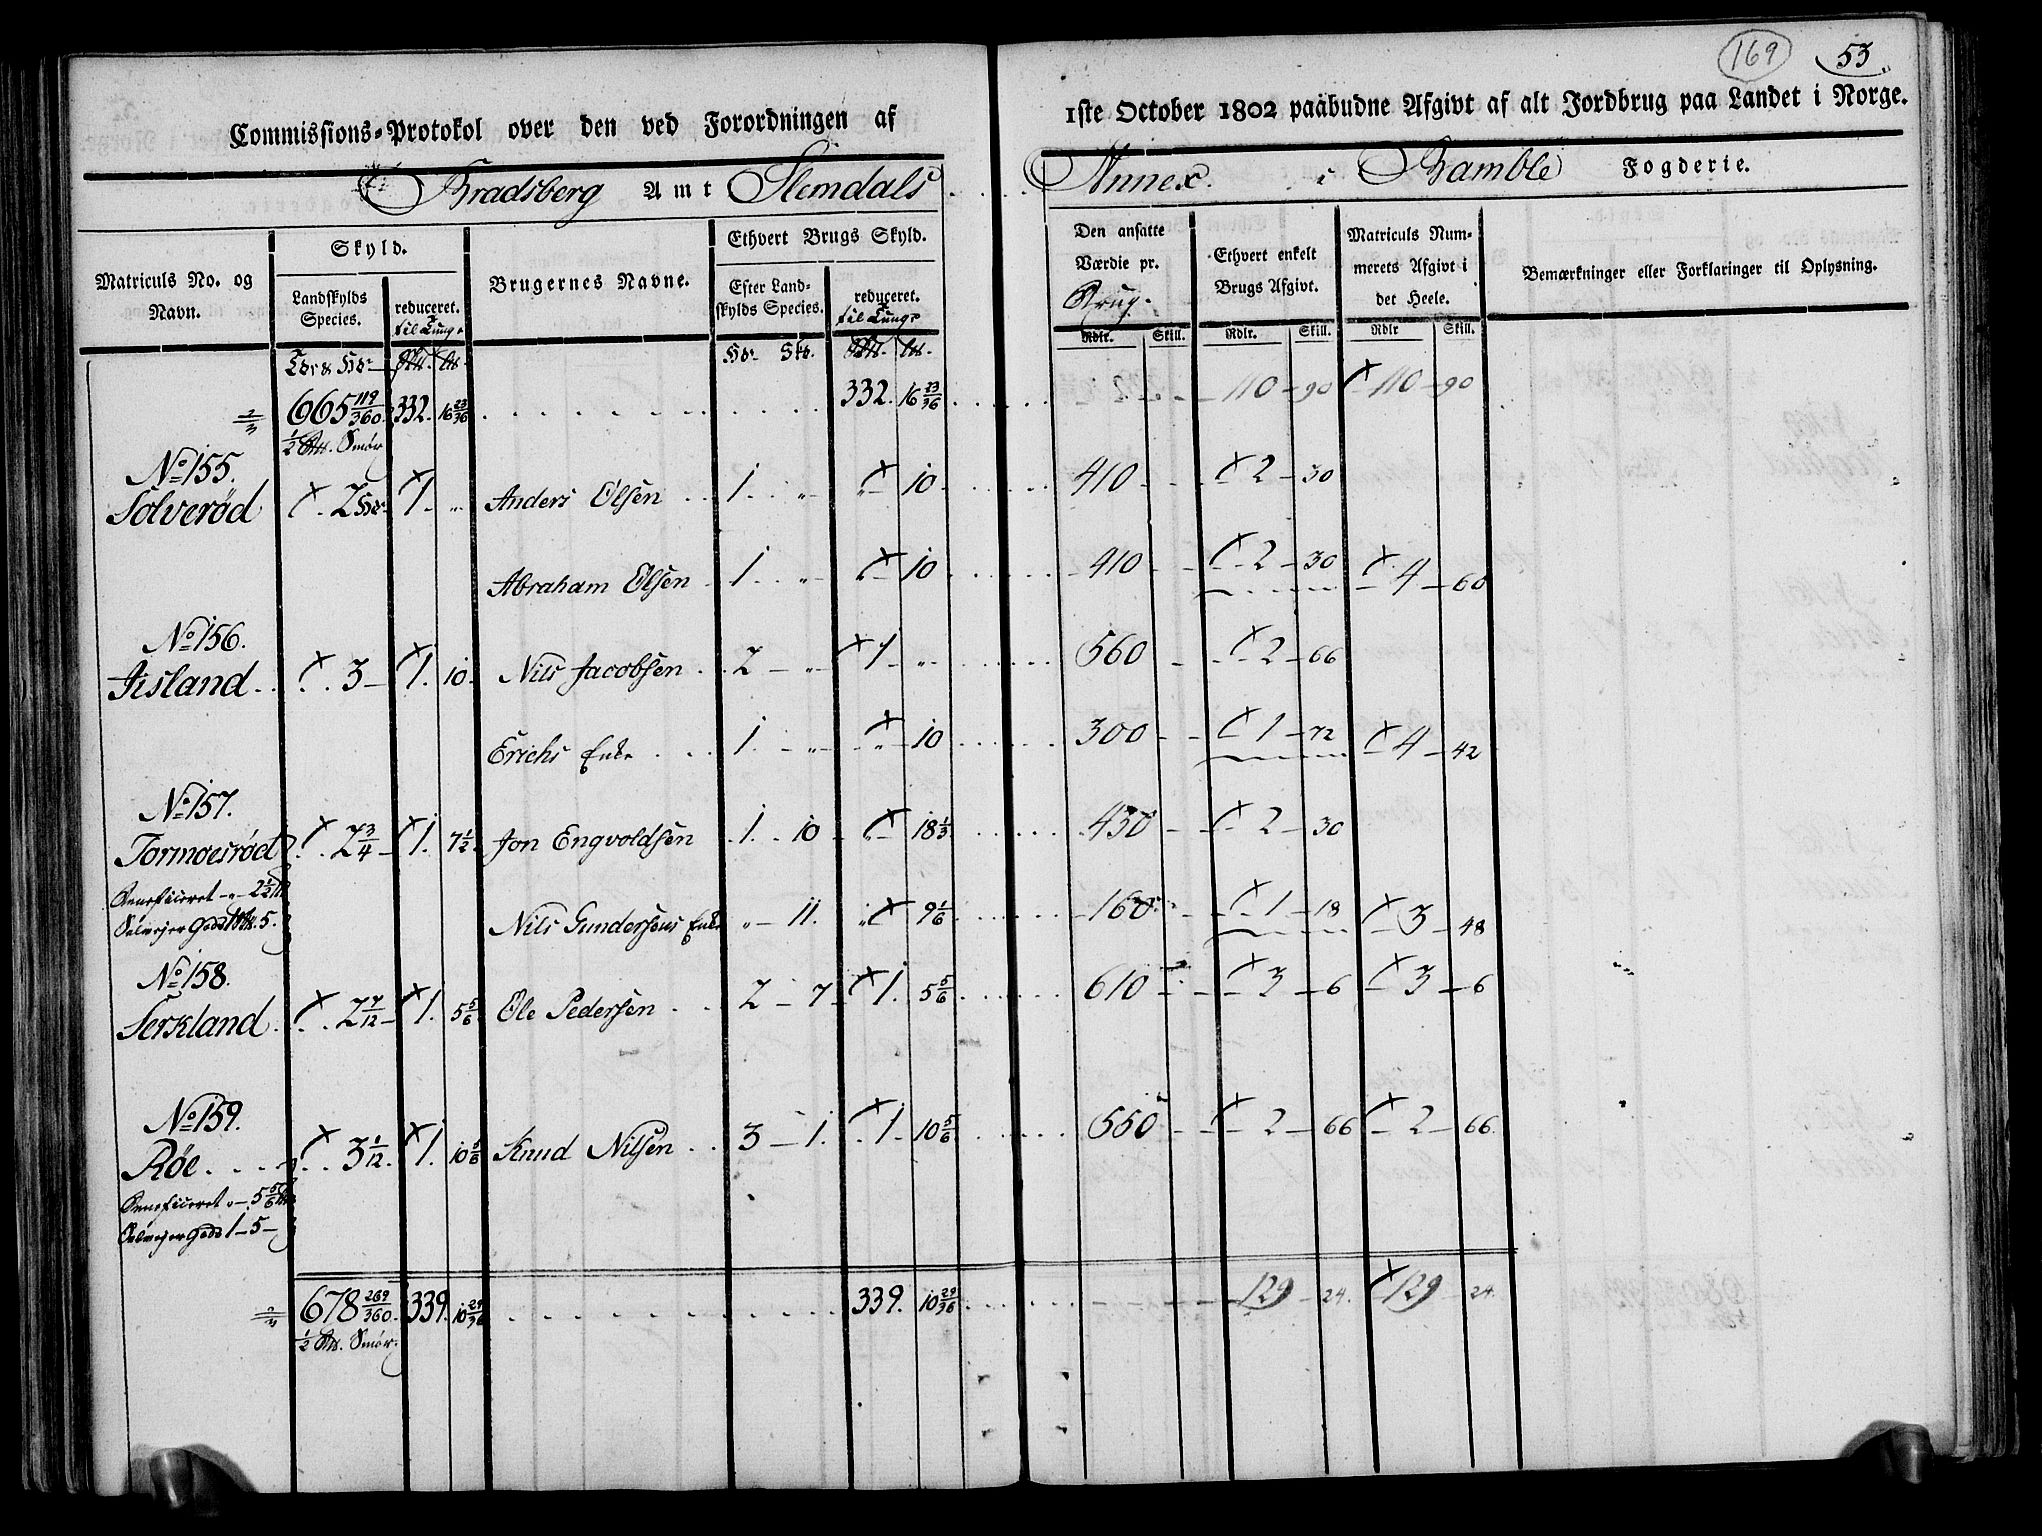 169 53
Commissions-Protokol over den ved Forordningen af 1ste October 1802 paabudne Afgivt af alt Jordbrug paa Landet i Norge.
Bradsberg Amt Slemdals Annex i Bamble Fogderie.
Matriculs No. og Navn.
Skyld.
Landskylds Species.
reduceret. til Tunge
Brugernes Navne.
Ethvert Brugs Skyld.
Efter Landskylds Species.
reduceret. til Tunge
Den ansatte Værdie pr. Brug.
Ethvert enkelt Brugs Afgivt.
Matriculs Nummerets Afgivt i det Heele.
Bemærkninger eller Forklaringer til Oplysning.
Rdlr. Skill. Rdlr. Skill. Rdlr Skill.
665 119/360 332. 16 23/36 332. 16 23/36 110 - 90 110 - 90
1/2 Smør
No 155.
Solverød 2 1 - " Anders Olsen 1 " " 10 410 2 - 30
Abraham Olsen 1 " " 10 410 2 - 30 4 - 60
No 156.
Iisland 3 1. 10 Nils Jacobsen 2 - " 1 - " 560 2 - 66
Erichs Enke 1 - " " 10 300 1 - 72 4 - 42
No 157.
Tormoesrød 2 3/4 1. 7 1/2 Jon Engvoldsen 1. 10 " 18 1/3 430 2 - 30
Beneficeret - " - 2 1/2
Selvejer Gods 5.
Nils Gundersens Enke " - 11. " 9 1/6 160 1 - 18 3 - 48
No 158.
Serkland 2 7/12 1. 5 5/6 Ole Pedersen 2 - 7 1. 5 5/6 610 3 - 6 3 - 6
No 159.
Røe 3 1/12 1. 10 5/6 Knud Nilsen 3 - 1. 1 - 10 5/6 550 2 - 66 2 - 66
Beneficeret " - 5 5/6
Selvejer Gods 1 - 5 -
678 269/360 339. 10 29/36 339. 10 29/36 129 - 24. 129 - 24
1/2 Smør.